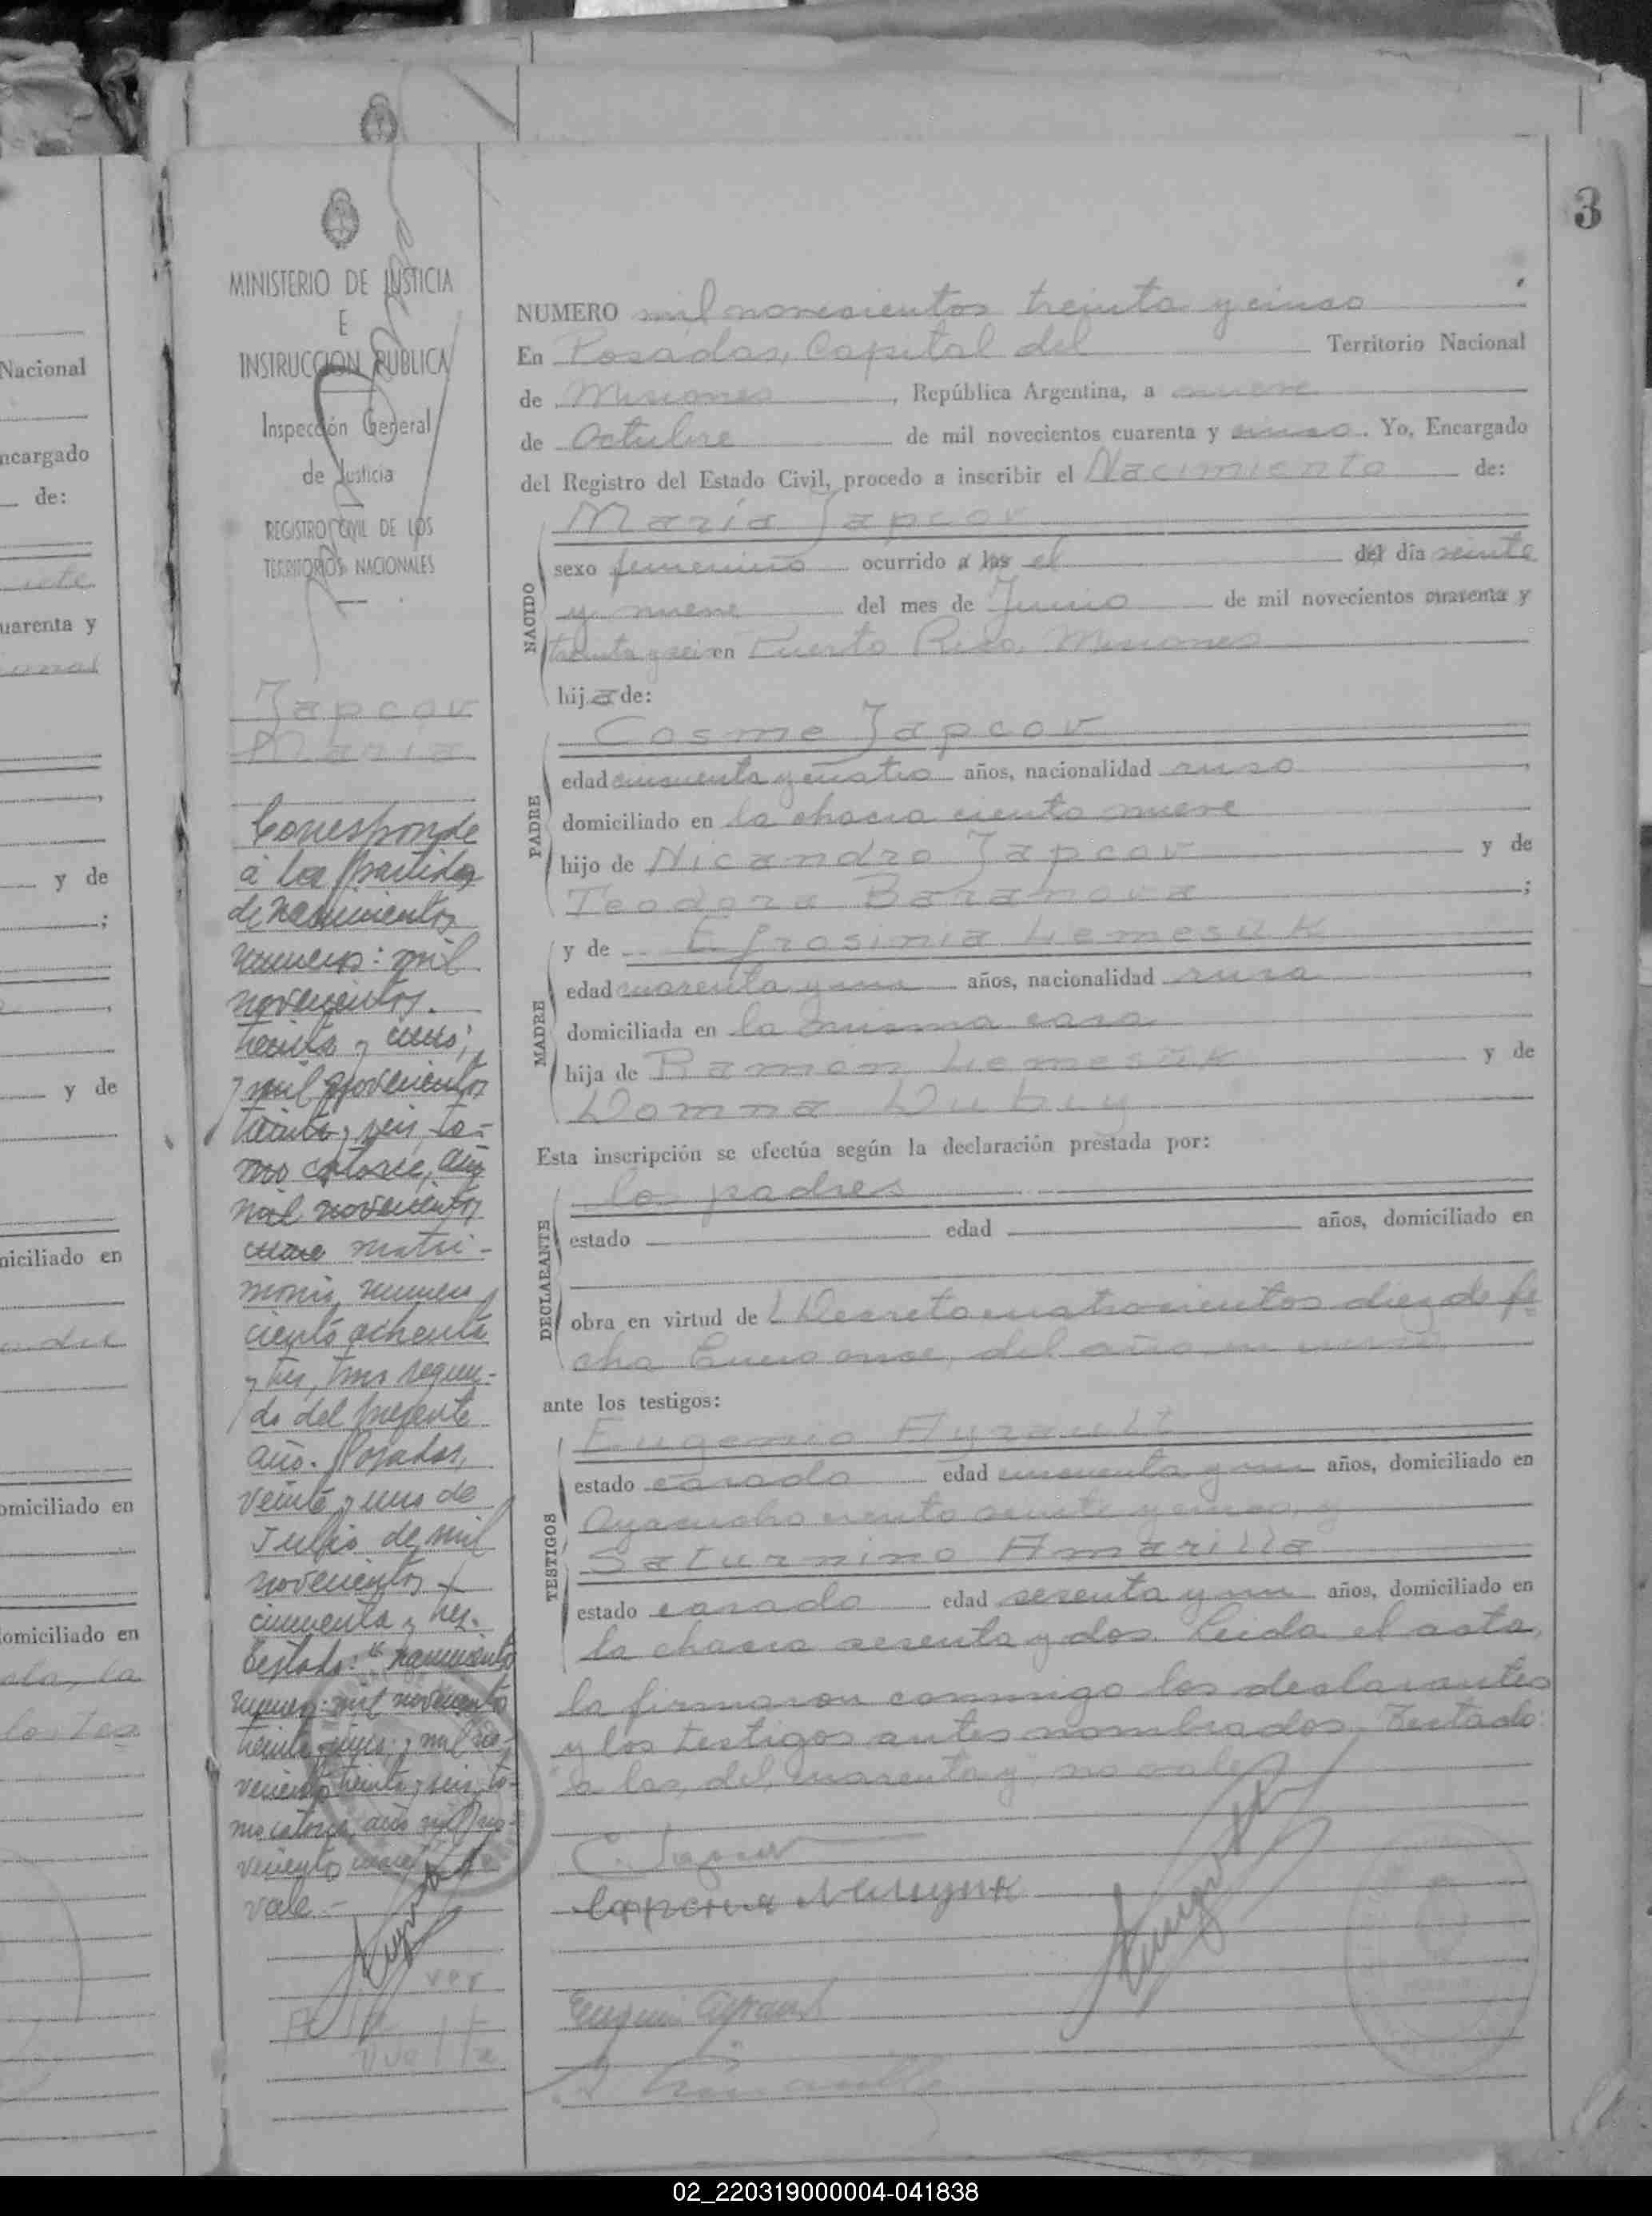 3
MINISTERIO DE JUSTICIA
E
INSTRUCCION PUBLICA
Inspección General
de Justicia
REGISTRO CIVIL DE LOS
TERRITORIOS NACIONALES
Japcov
María
Corresponde
à la partida
de nacimientos
numeros: mil
novecientos
treinta y cinco;
y mil novecientos
treinta y seis, to-
mo catorce, año
mil novecientos
matri-
monio, numero
ciento ochenta
y tres, tomo segun-
do del presente
año. Posadas,
veinte y uno de
Julio de mil
novecientos
cincuenta y tres.
Testado: "nacimiento
numero: mil novecientos
treinta y cinco; y mil no-
vecientos treinta y seis, to-
mo catorce, año mil no-
vecientos
vale.-
ver
a la
vuelta
NUMERO mil novecientos treinta y cinco
En Posadas, Capital del Territorio Nacional
de Misiones, República Argentina, a nueve
de Octubre de mil novecientos cuarenta y cinco. Yo, Encargado
del Registro del Estado Civil, procedo a inscribir el Nacimiento de:
NACIDO
María Japcov
sexo femenino ocurrido a las el del día veinte
y nueve del mes de Junio de mil novecientos cuarenta y
treinta y seis en Puerto Rico, Misiones
hija de:
PADRE
Cosme Japcov
edad cincuenta y cuatro años, nacionalidad ruso
domiciliado en la chacra ciento nueve
hijo de Nicandro Japcov y de
Teodora Baranova;
MADRE
y de Efrosinia Lemesuk
edad cuarenta y un años, nacionalidad rusa
domiciliada en la misma casa
hija de Ramón Lemesuk y de
Domna Dubiy
Esta inscripción se efectúa según la declaración prestada por:
DECLARANTE
los padres
estado edad años, domiciliado en
obra en virtud de Decreto cuatrocientos diez de fe
cha Enero once, del año en curso
ante los testigos:
TESTIGOS
Eugenio Ayrault
estado casado edad cincuenta y un años, domiciliado en
Ayacucho ciento veinte y cinco, y
Saturnino Amarilla
estado casado edad sesenta y un años, domiciliado en
la chacra sesenta y dos. Leida el acta,
la firmaron conmigo los declarantes
y los testigos antes nombrados. Testado:
a las, del, cuarenta y, no vale
Eugenio Ayrault
02_220319000004-041838